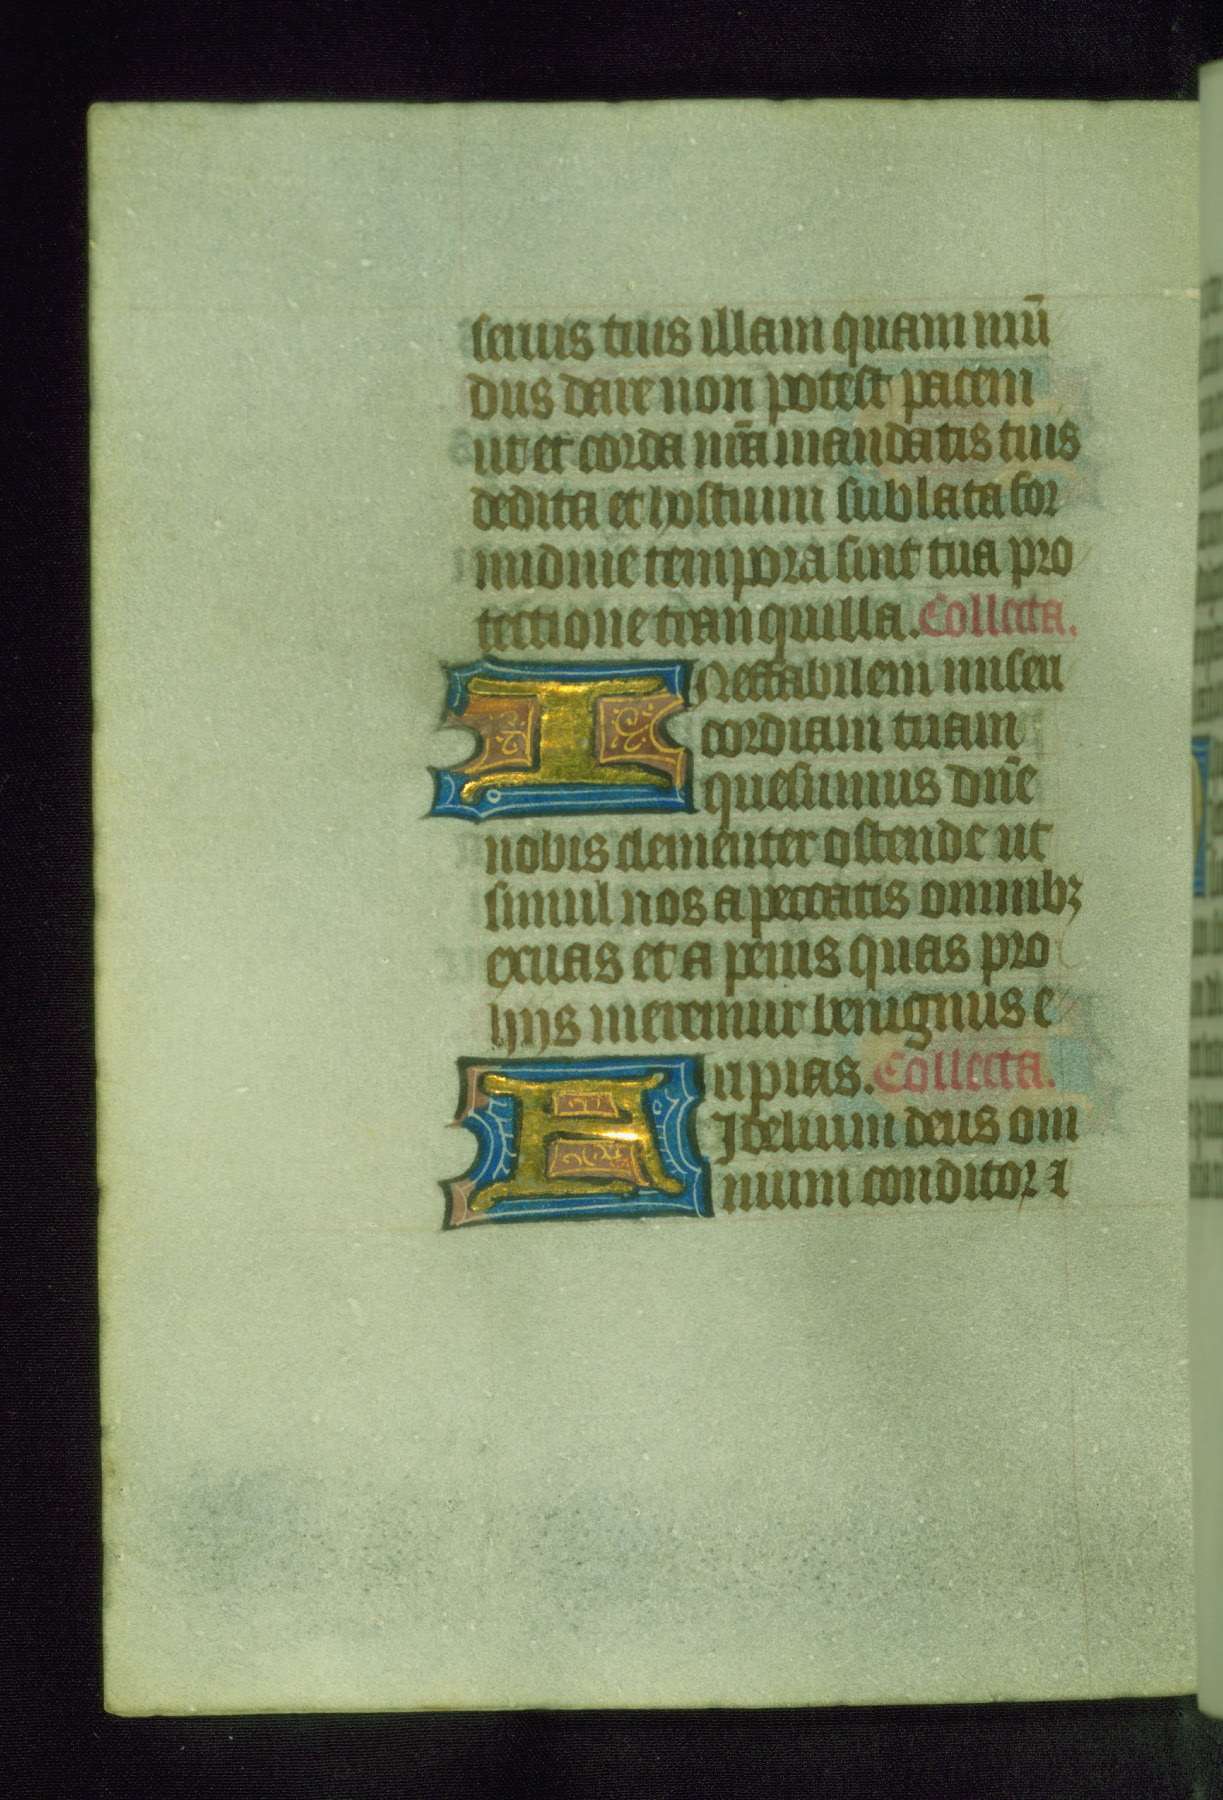 seruis tuis illam quam mū
dus dare non potest pacem
ut et corda nr̄a mandatis tuis
dedita et hostium sublata for
midine tempora sint tua pro
tectione tranquilla. Collecta.
INeffabilem miseri
cordiam tuam
quesumus dn̄e
nobis clementer ostende ut
simul nos a peccatis omnibꝫ
exuas et a penis quas pro
hijs meremur benignus e
ripias. Collecta.
FIdelium deus om
nium conditor ⁊